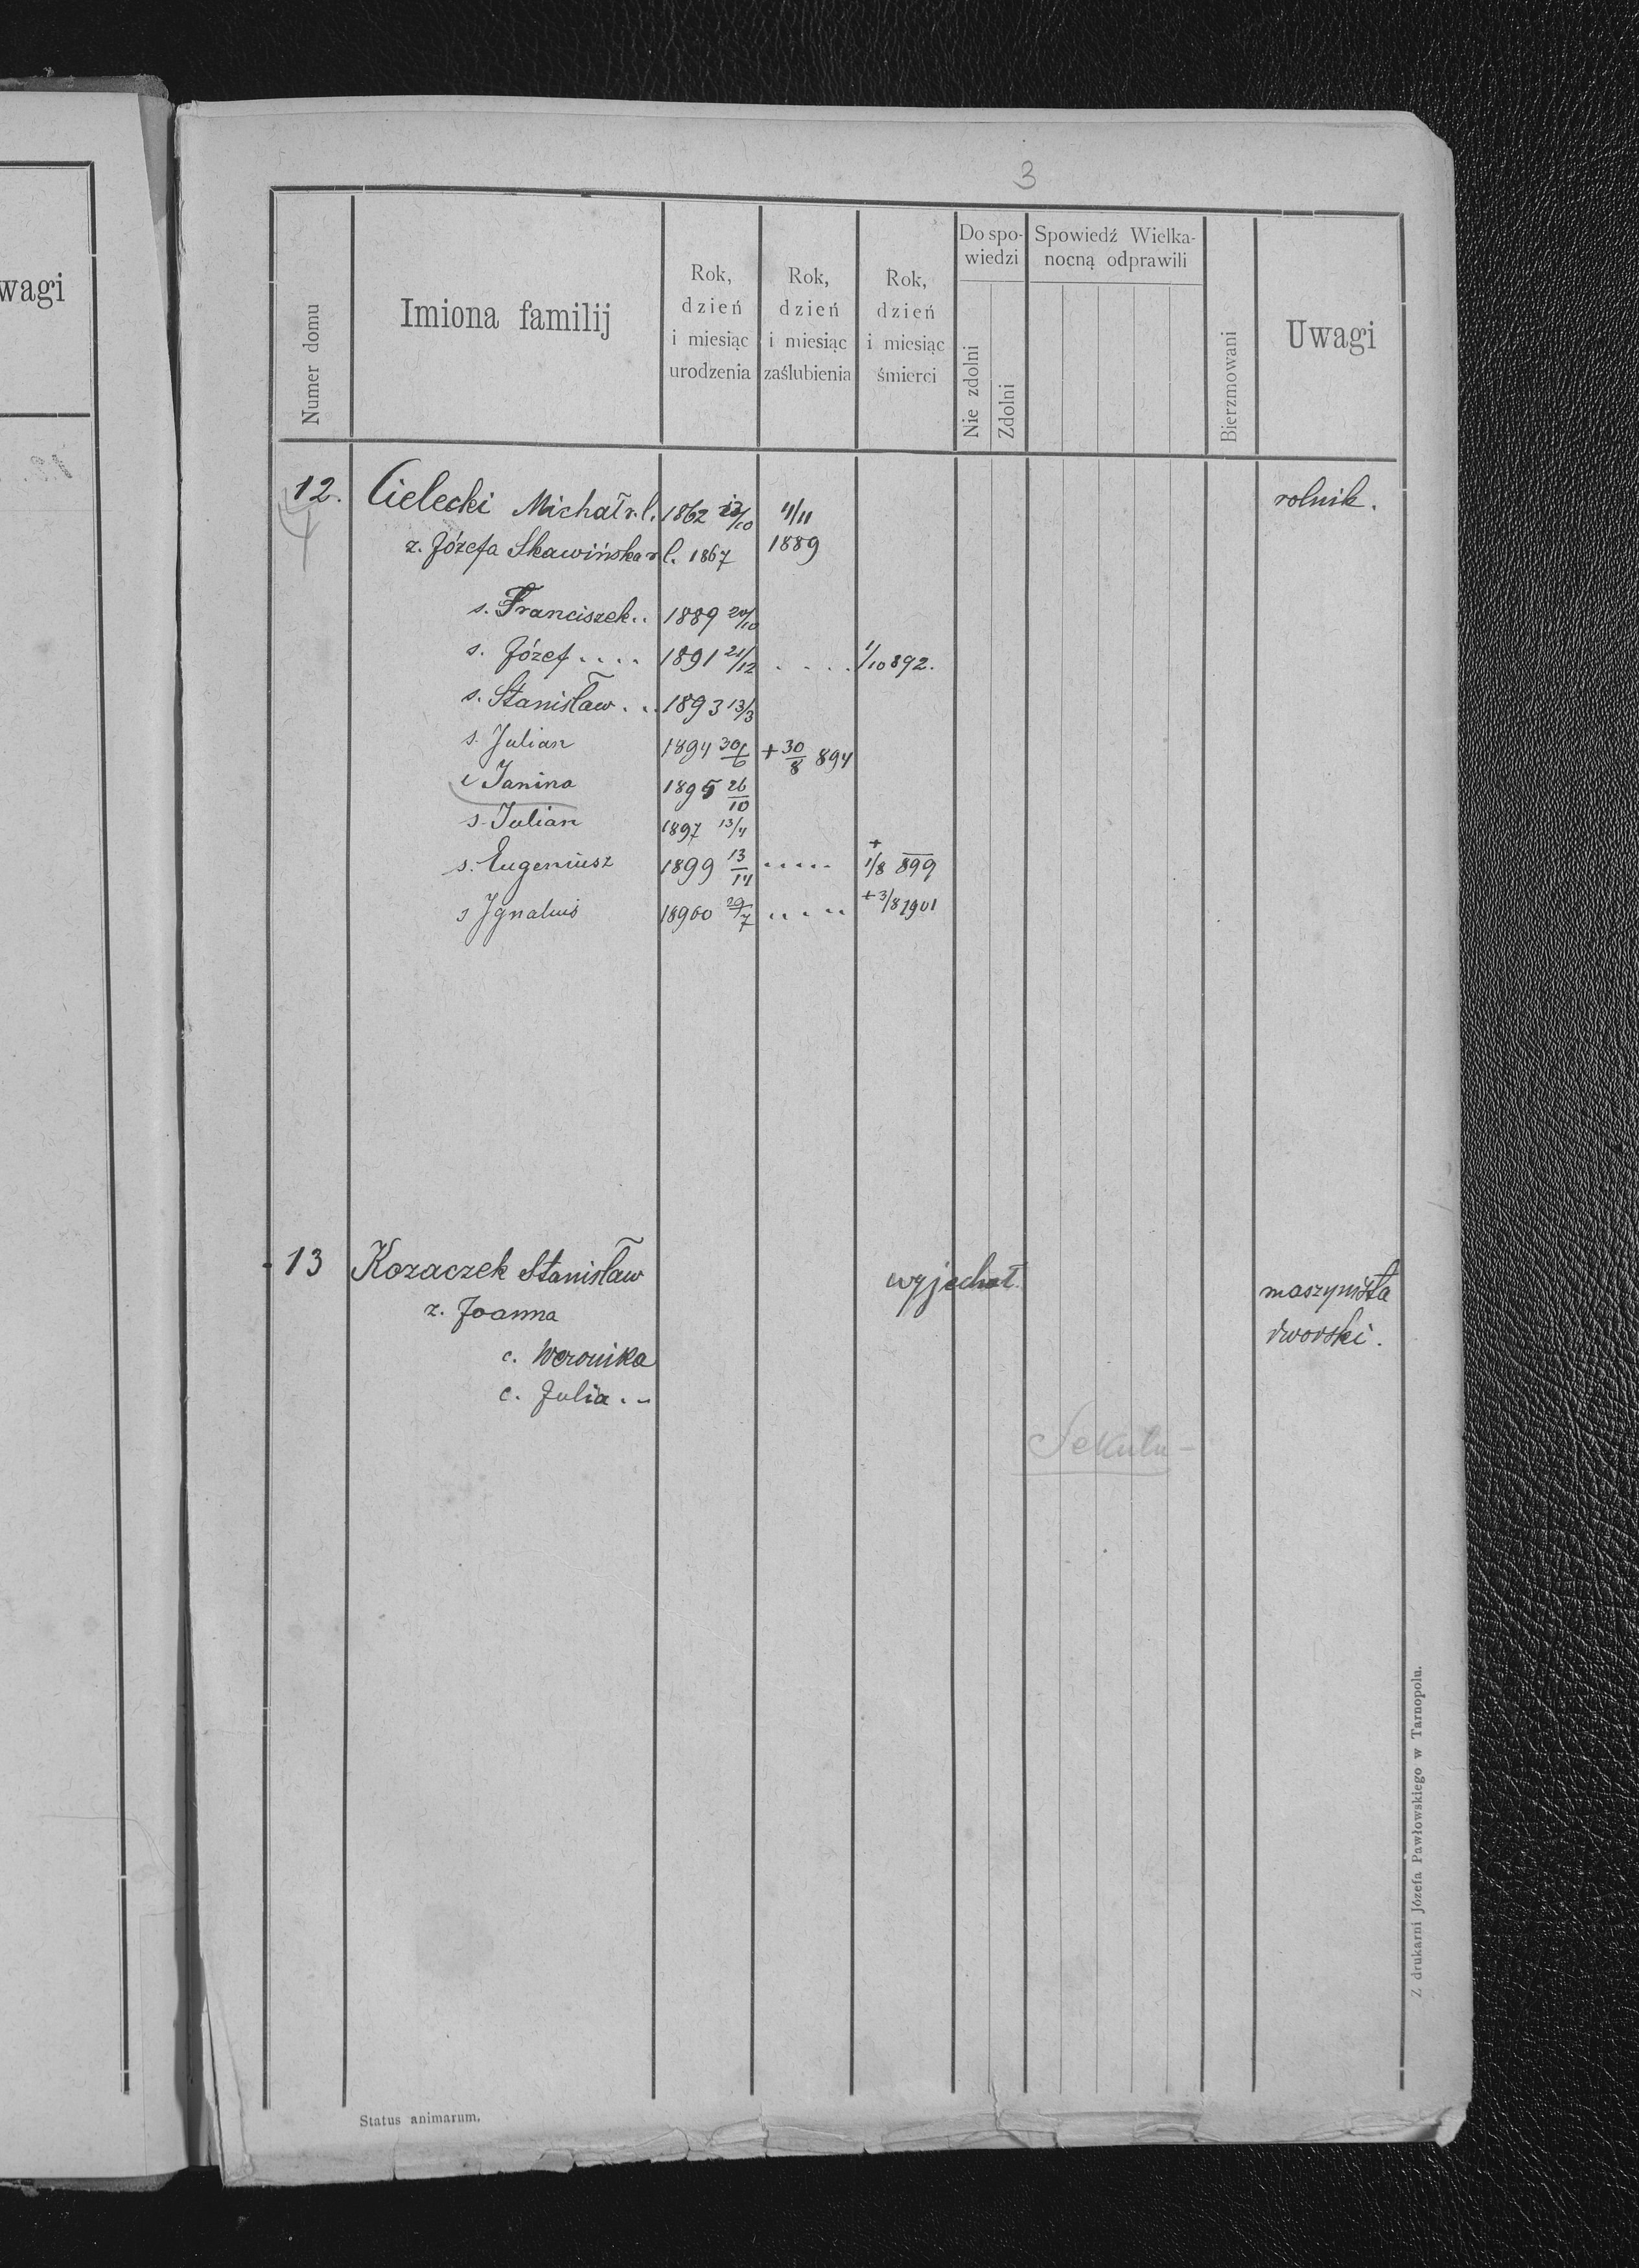 3
wagi
Numer domu
Imiona familij
Rok, dzień i miesiąc urodzenia
Rok, dzień i miesiąc zaślubienia
Rok, dzień i miesiąc śmierci
Do spo-
wiedzi
Nie zdolni
Zdolni
Spowiedź Wielka-
nocną odprawili
Bierzmowani
Uwagi
12. Cielecki Michał r.l. 1862 /10 11/11 rolnik.
z. Józefa Skawińska r.l. 1867 1889
s. Franciszek.. 1889 20/10
s. Józef.... 1891 21/12 .... 1/10 892.
s. Stanisław... 1893 13/3
s. Julian 1894 30/6 + 30/8 894
c Janina 1895 26/10
s. Julian 1897 13/4
s. Eugeniusz 1899 13/14 ..... + 1/8 899
s Ignatius 18900 29/7 ..... + 3/8 1901
13 Kozaczek Stanisław wyjechał. maszynista
z. Joanna dworski.
c. Weronika
c. Julia..
Status animarum.
Z drukarni Józefa Pawłowskiego w Tarnopolu.